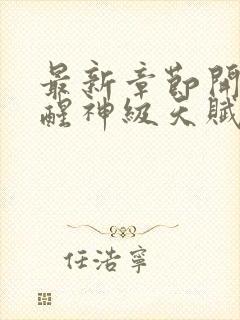 最新章節開
醒神級天賦
任浩寧